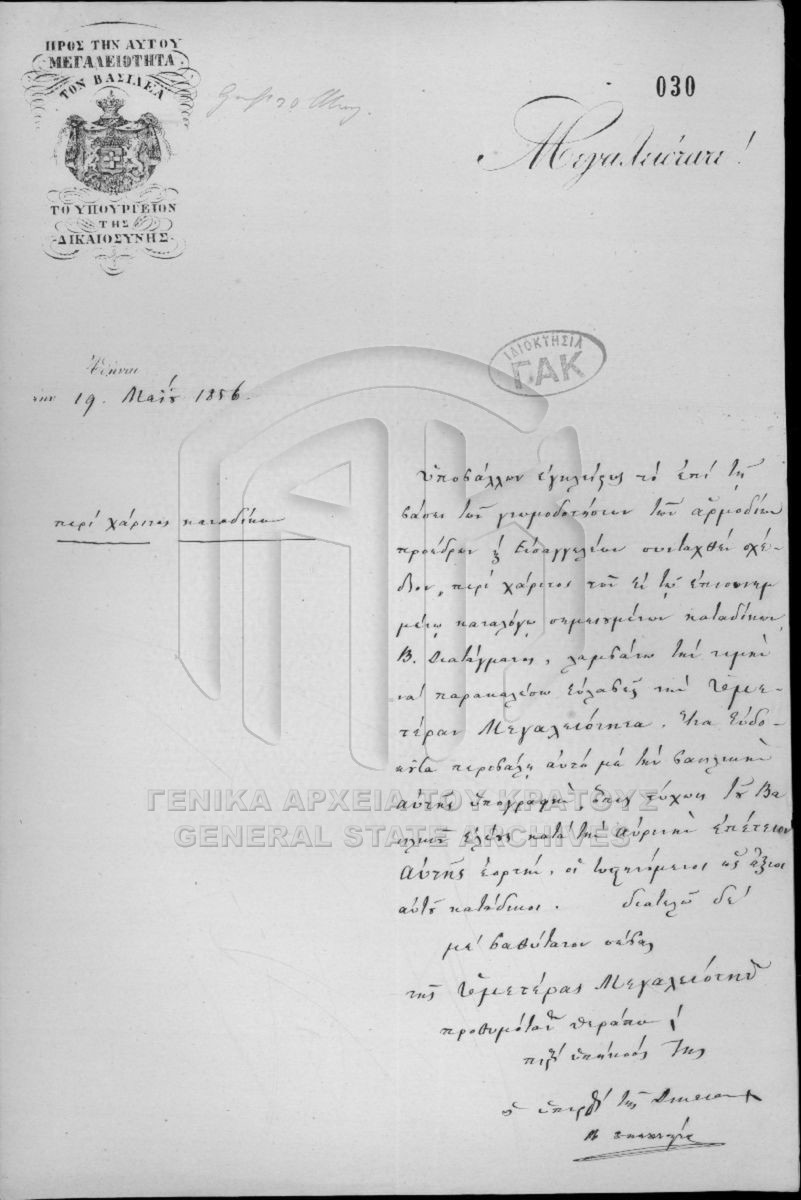 ΠΡΟΣ ΤΗΝ ΑΥΤΟΥ
ΜΕΓΑΛΕΙΟΤΗΤΑ
ΤΟΝ ΒΑΣΙΛΕΑ
ΤΟ ΥΠΟΥΡΓΕΙΟΝ
ΤΗΣ
ΔΙΚΑΙΟΣΥΝΗΣ
030
Μεγαλειότατε!
ΙΔΙΟΚΤΗΣΙΑ
ΓΑΚ
Ἀθῆναι
τὴν 19. Μαΐου 1856.
περὶ χάριτος καταδίκων
Ὑποβάλλων ἐγκλείστως τὸ ἐπὶ τῇ
βάσει τῶν γνωμοδοτήσεων τῶν ἁρμοδίων
προέδρων ἢ Εἰσαγγελέων συνταχθὲν σχέ-
διον, περὶ χάριτος τῶν ἐν τῷ ἐπισυνημ
μένῳ καταλόγῳ σημειουμένων καταδίκων,
Β. Διατάγματος, λαμβάνω τὴν τιμὴν
νὰ παρακαλέσω εὐλαβῶς τὴν Ὑμε-
τέραν Μεγαλειότητα, ἵνα εὐδο-
κοῦσα περιβάλῃ αὐτὸ μὲ τὴν βασιλικὴν
αὐτῆς ὑπογραφὴν, ὅπως τύχωσι τοῦ Βα
σιλικοῦ ἐλέους κατὰ τὴν αὐριανὴν ἐπέτειον
Αὐτῆς ἑορτὴν, οἱ ὡς ἄξιοι
αὐτοῦ κατάδικοι. Διατελῶ δὲ
μὲ βαθύτατον σέβας
τῆς Ὑμετέρας Μεγαλειότητος
προθυμότατος θεράπων
πιστὸς ὑπήκοός Της
ὁ ὑπουργὸς τῆς Δικαιοσ
ΓΕΝΙΚΑ ΑΡΧΕΙΑ ΤΟΥ ΚΡΑΤΟΥΣ
GENERAL STATE ARCHIVES